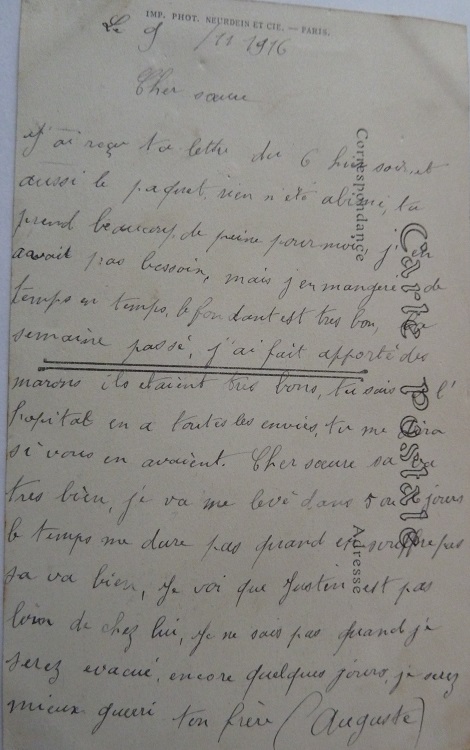 IMP. PHOT. NEURDEIN ET CIE. — PARIS.
Le 9 /11 1916
Cher sœure
J'ai reçu ta lettre du 6 hier soir, et
aussi le paquet, rien n'été abimé, tu
prend beaucoup de peine pour moi, j'
avait pas bessoin, mais j'en mangere de
temps en temps, le fondant est tres bon,
semaine passé, j'ai fait apporté des
marons ils etaient tres bons, tu sais l'
hopital on a toutes les envies, tu me dira
si vous en avaient. Cher sœure sa va
tres bien, je va me levé dans 5 ou 6 jours
le temps me dure pas quand
sa va bien, Je voi que Justin est pas
loin de chez lui, Je ne sais pas quand je
serez evacué, encore quelques jours, je serez
mieux gueri ton frère (Auguste)
Correspondance
Carte postale
Adresse